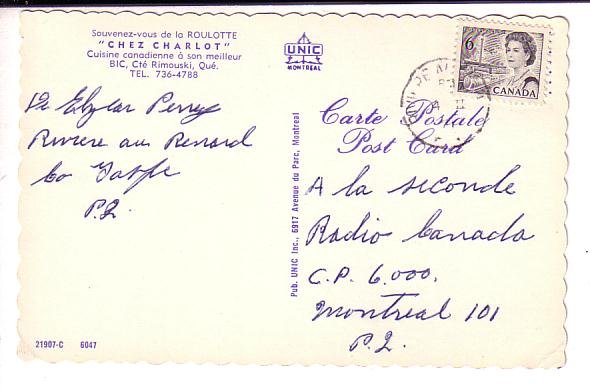 Souvenez-vous de la ROULOTTE
"CHEZ CHARLOT"
Cuisine canadienne à son meilleur
BIC, Cté Rimouski, Qué.
TEL. 736-4788
UNIC
MONTREAL
6
CANADA
De Perrey
Riviere au Renard
Co Gaspe
P.Q.
Pub. UNIC Inc., 6917 Avenue du Parc, Montreal
Carte Postale
Post Card
A la seconde
Radio Canada
C.P. 6.000.
Montreal 101
P.Q.
21907-C 6047